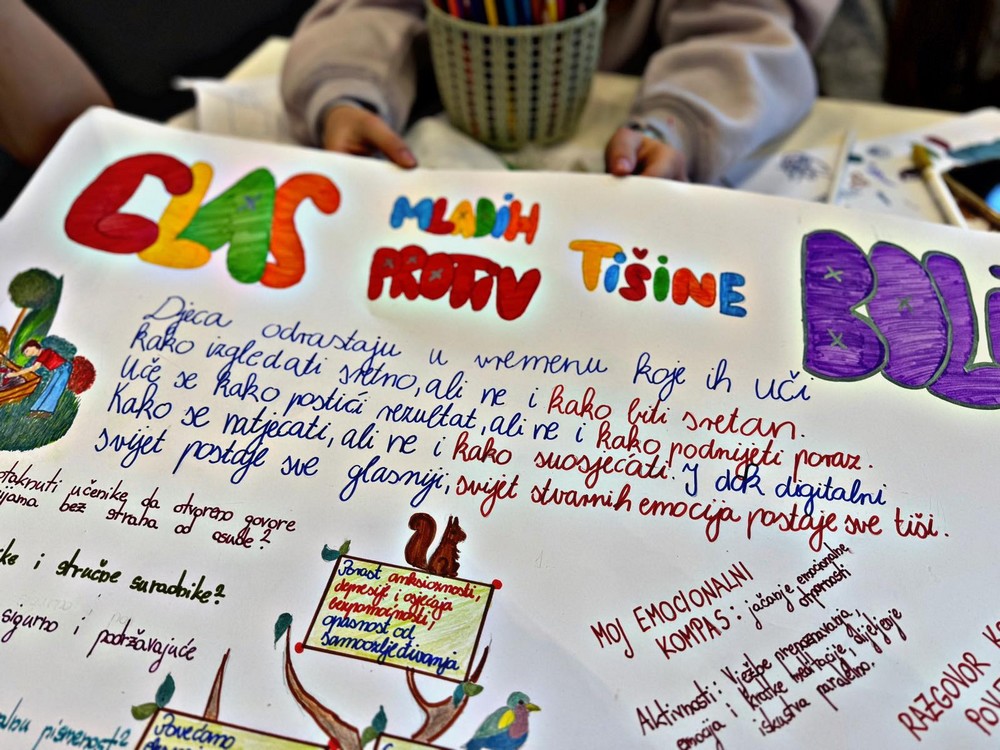 GLAS
MLADIH
PROTIV
TIŠINE
BOLI
Djeca odrastaju u vremenu koje ih uči
kako izgledati sretno, ali ne i kako biti sretan.
Uče se kako postići rezultat, ali ne i kako podnijeti poraz.
Kako se natjecati, ali ne i kako suosjećati. I dok digitalni
svijet postaje sve glasniji, svijet stvarnih emocija postaje sve tiši.
učenike da otvoreno govore
bez straha od osude?
i stručne suradnike?
sigurno i podržavajuće
pismenost?
Porast anksioznosti,
depresije i osjećaja
bespomoćnosti,
opasnost od
samoozljeđivanja
Povećano
MOJ EMOCIONALNI
KOMPAS: jačanje emocionalne
otpornosti
Aktivnosti: Vježbe prepoznavanja
emocija i kratke meditacije, dijeljenje
iskustva
RAZGOVOR